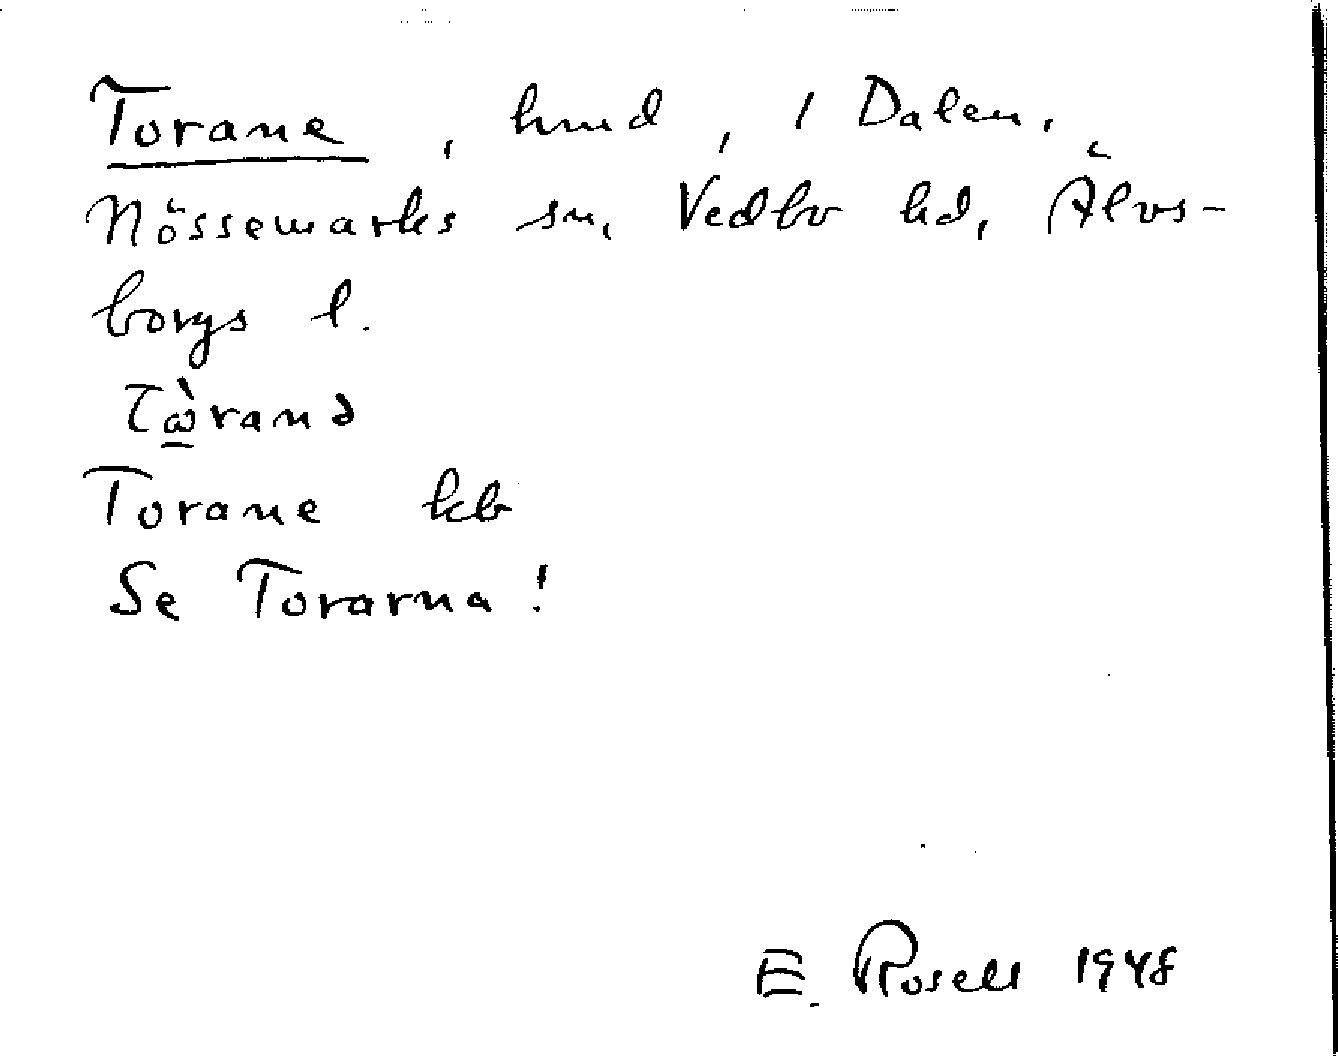 Torane, hmd, 1 Dalen,
Nössemarks sn, Vedbo hd, Älvs-
borgs l.
Tὼ̲ranə
Torane kb
Se Torarna!
E. Rosell 1948